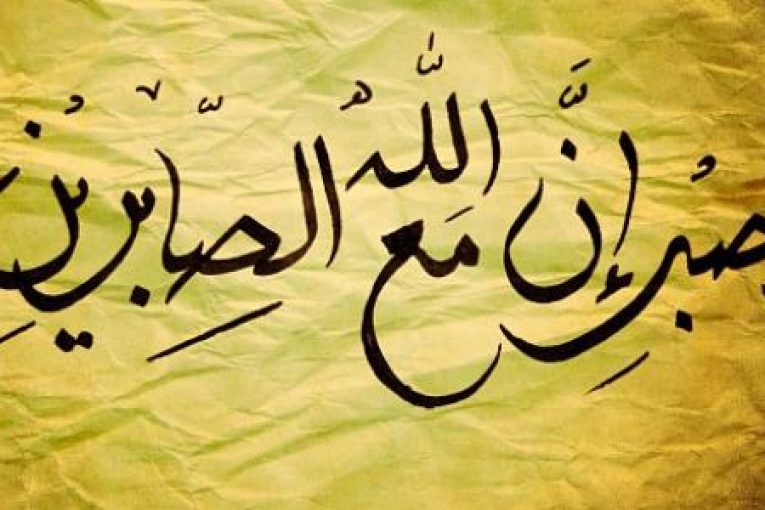 صبر إِنَّ اللّه مَع الصّابِرين